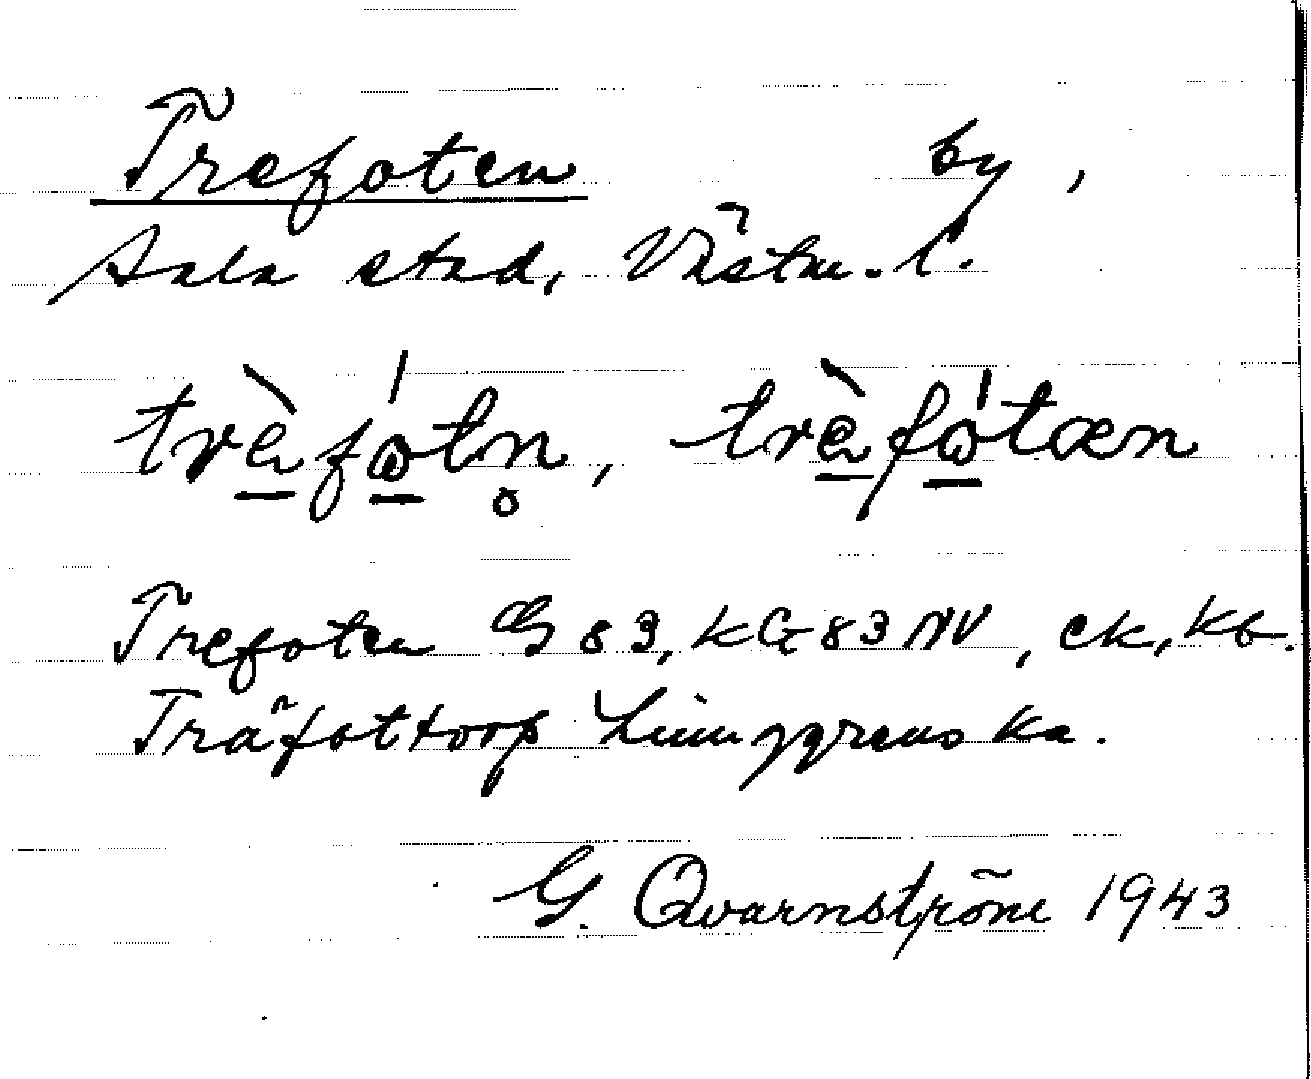 Trefoten by,
Sala stad, Västm. l.
trèfó̱tn̥, trèfó̱tæn
Trefoten G 83, KG 83 NV, ek, kb.
Träfottorp Ljunggrenska.
G. Qvarnström 1943